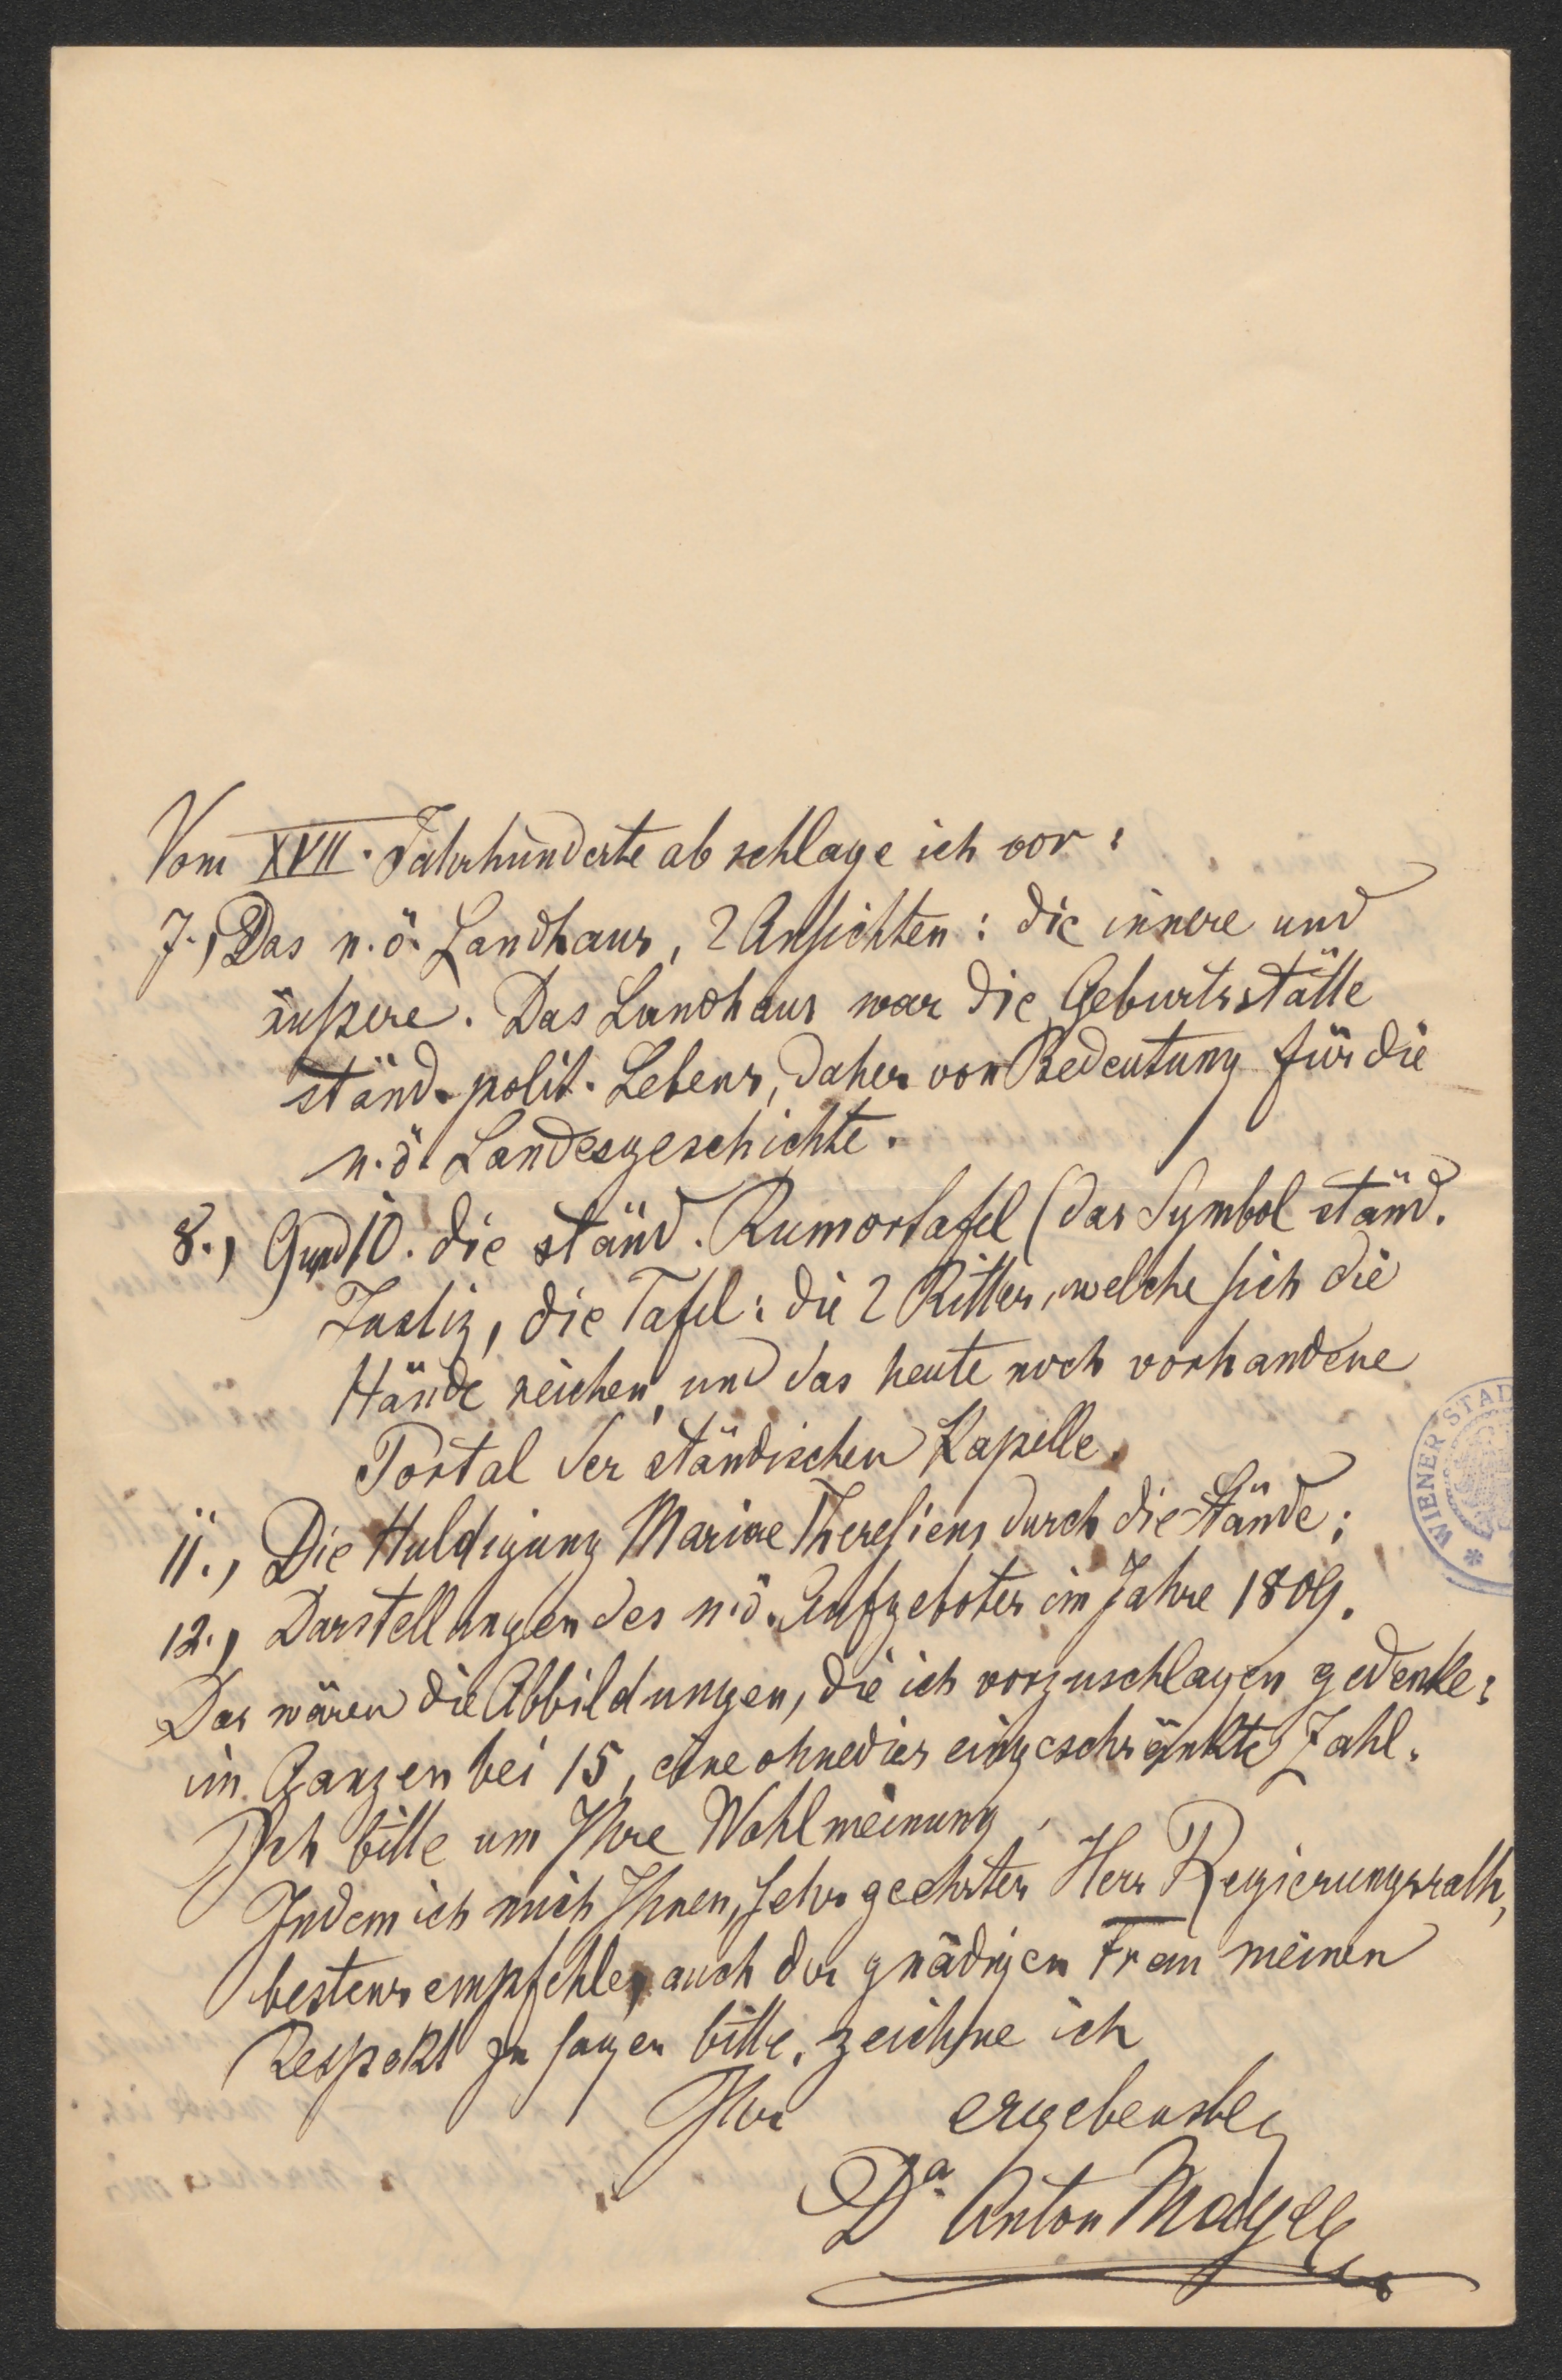 Vom XVII. Jahrhunderte ab schlage ich vor:
7., Das n.ö. Landhaus, 2 Ansichten: die innere und
äußere. Das Landhaus war die Geburtsstätte
ständ. polit. Lebens, daher von Bedeutung für die
n.ö. Landesgeschichte.
8., 9 und 10. die ständ. Rumortafel (das Symbol ständ.
Justiz, die Tafel: die 2 Ritter, welche sich die
Hände reichen, und das heute noch vorhandene
Portal der ständischen Kapelle.
11., Die Huldigung Mariae Theresiens durch die Stände;
12., Darstellungen des n.ö. Aufgebotes im Jahre 1809.
Das wären die Abbildungen, die ich vorzuschlagen gedenke:
im Ganzen bei 15, eine ohnedies eingeschränkte Zahl.
Ich bitte um Ihre Wohlmeinung.
Indem ich mich Ihnen, sehr geehrter Herr Regierungsrath,
bestens empfehle, auch der gnädigen Frau meinen
Respekt zu sagen bitte, zeichne ich
Ihr ergebenster
Dr. Anton Mayer
WIENER STAD